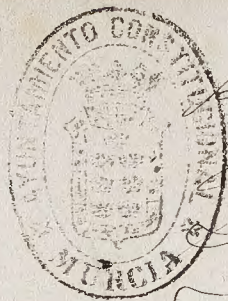 AYUNTAMIENTO CONSTITUCIONAL
* MURCIA *